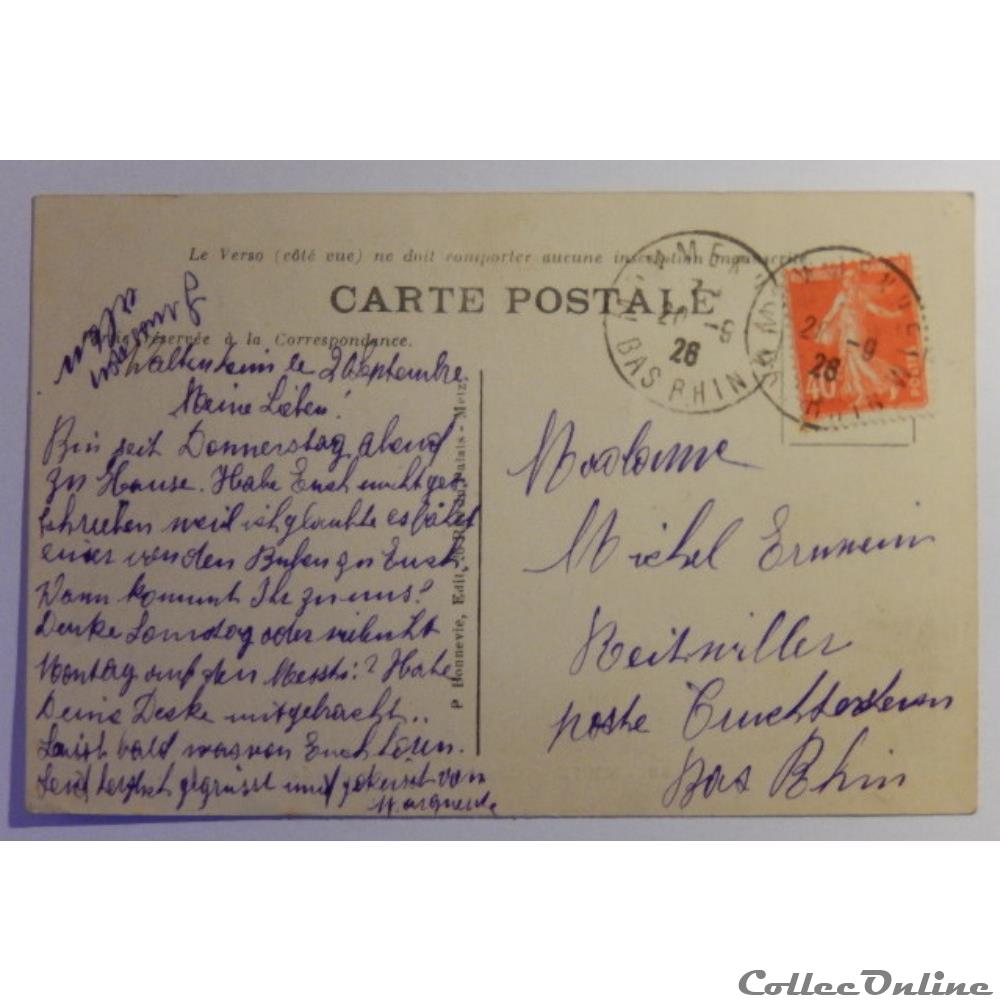 Le Verso (côté vue) ne doit comporter aucune inscription manuscrite
CARTE POSTALE
Partie réservée à la Correspondance.
le 20 Septembre
Meine Lieben!
Bin seit Donnerstag abend
zu Hause. Habe Euch nicht ge-
schrieben weil ich glaubte es fährt
einer von den Buben zu Euch.
Wann kommt Ihr zu uns?
Denke Sonndag oder vieleicht
Montag auf den Messti? Habe
Deine Deske mitgebracht..
Lasst bald was von Euch hören.
Seid herzlich gegrüsst und geküsst von
Marguerite
P Bonnevie, Edit. Palais - Metz
BAS RHIN
20 -9
26
20 -9
26
40
Madame
Michel
Reitwiller
poste Truchtersheim
Bas Rhin
CollecOnline